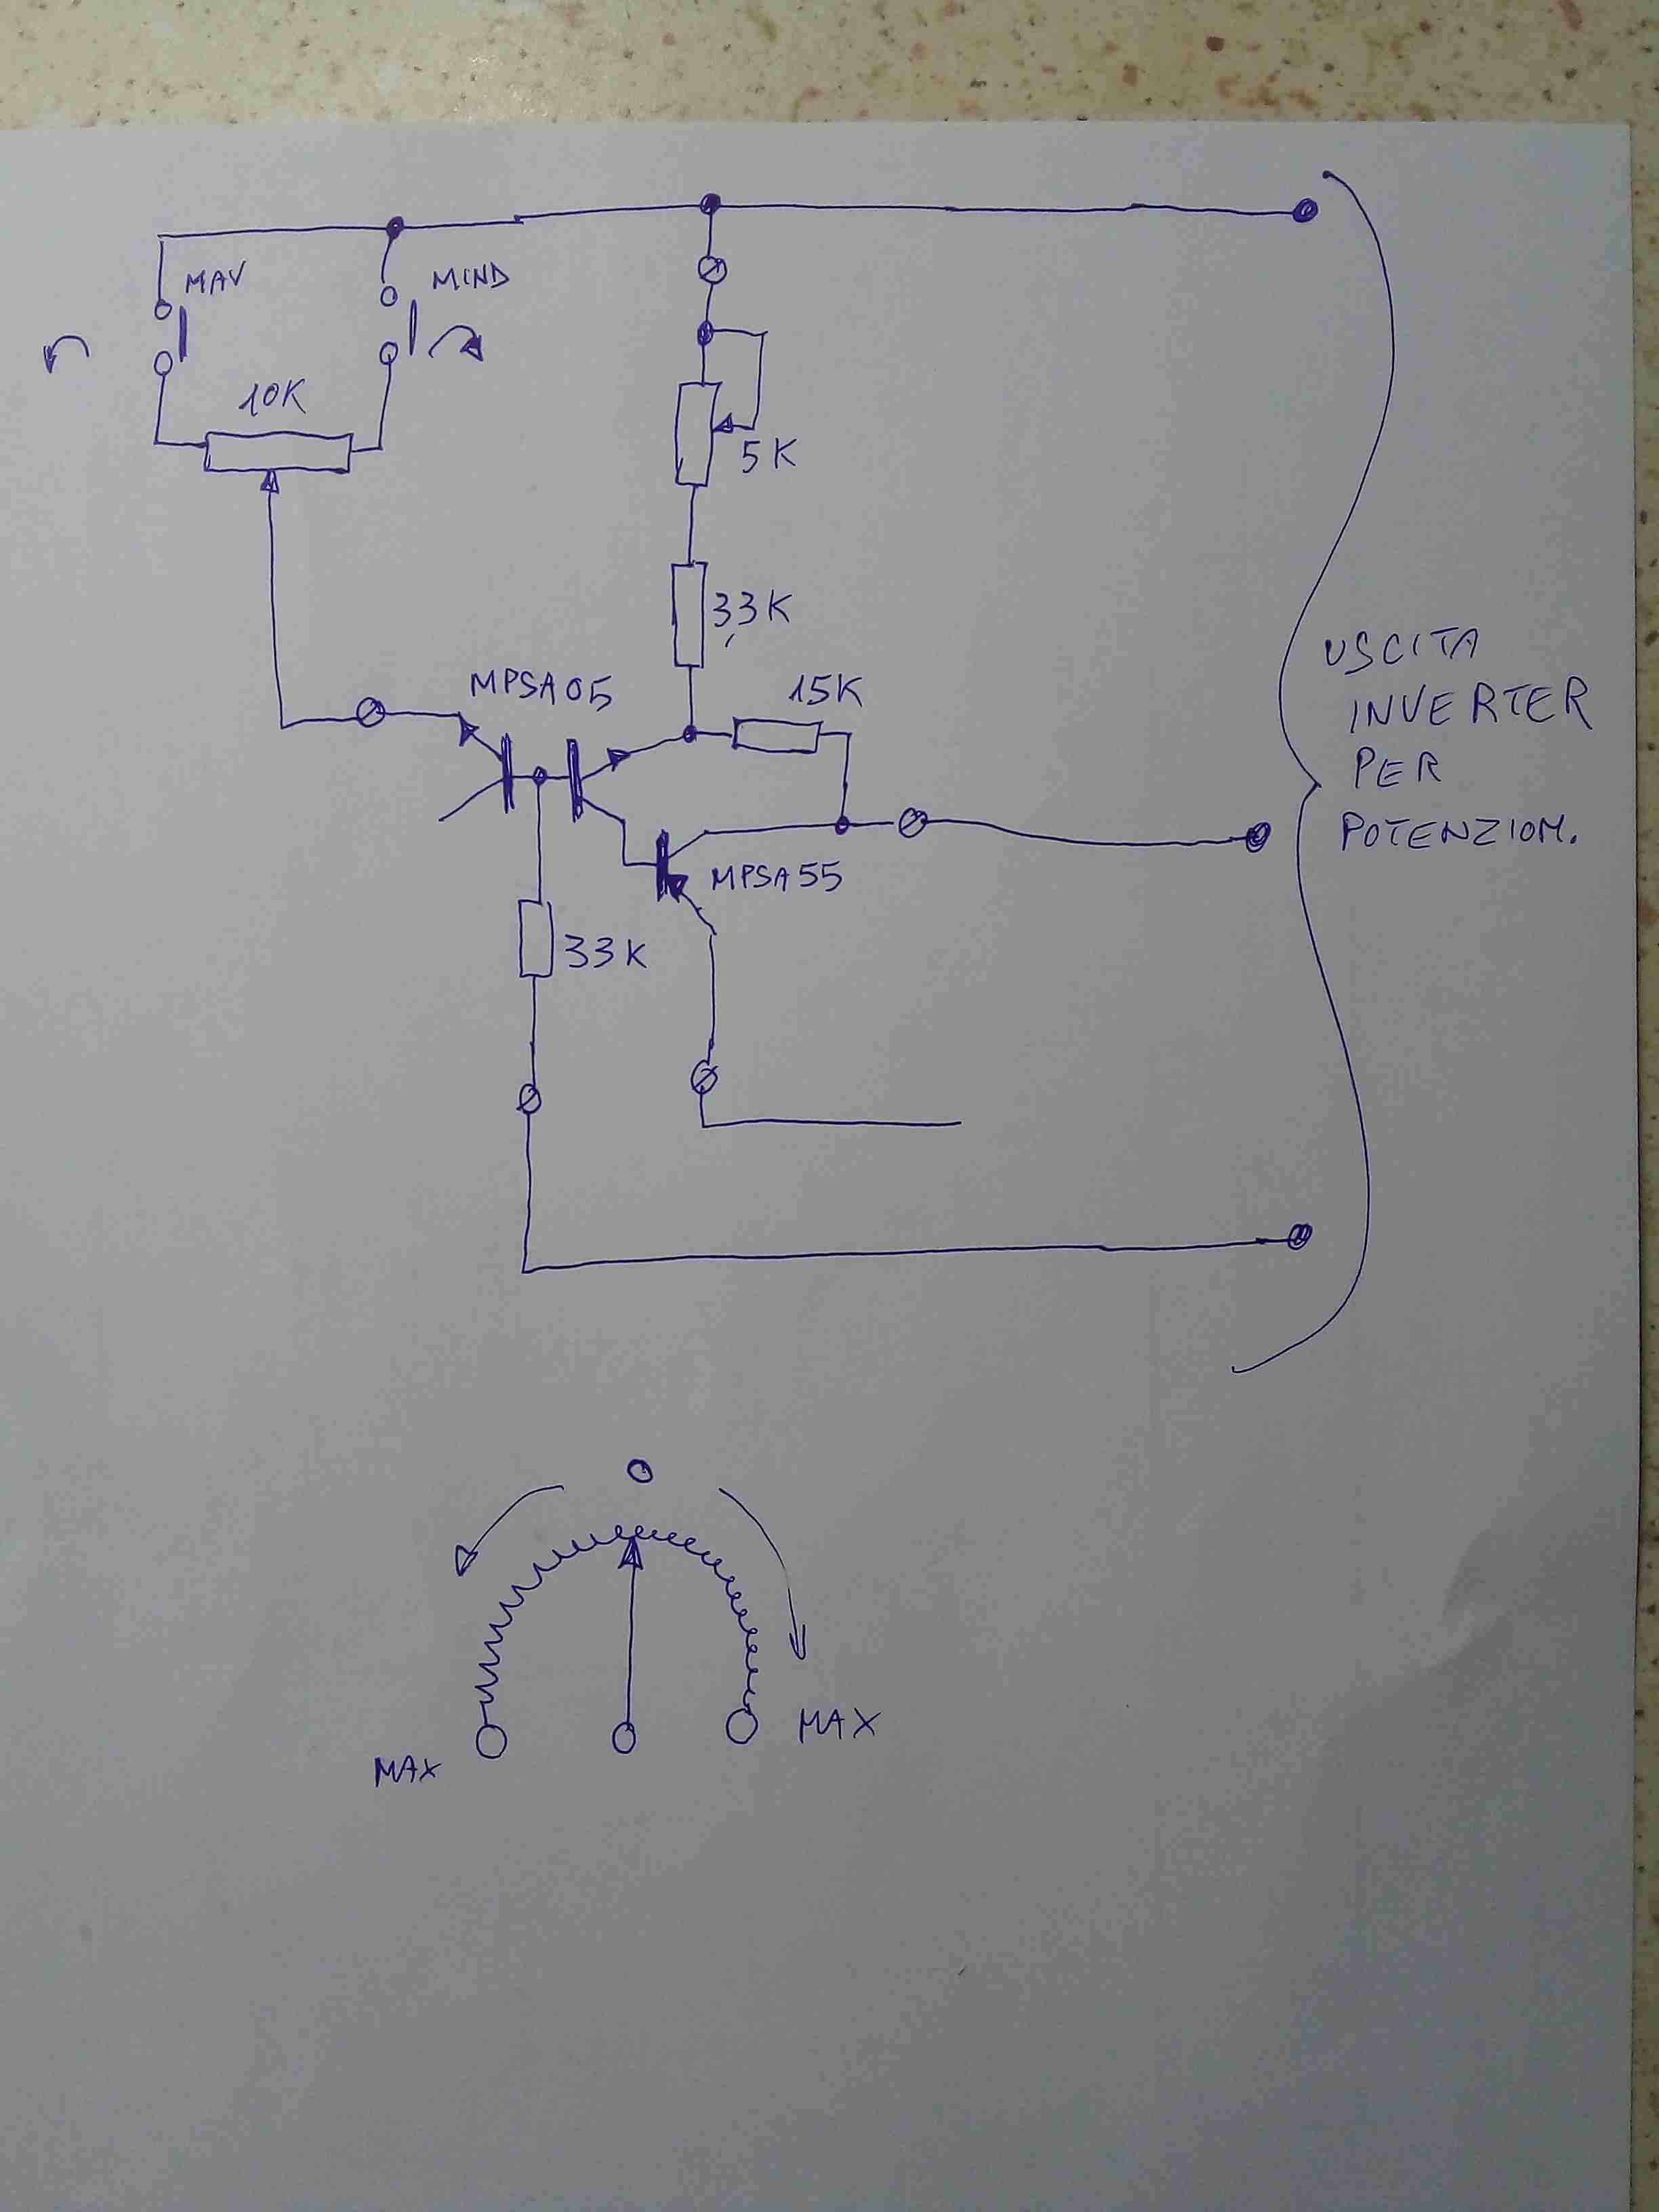 MAV
MIND
10K
5K
3,3K
MPSA05
15K
MPSA55
33K
USCITA
INVERTER
PER
POTENZIOM.
0
MAX
MAX